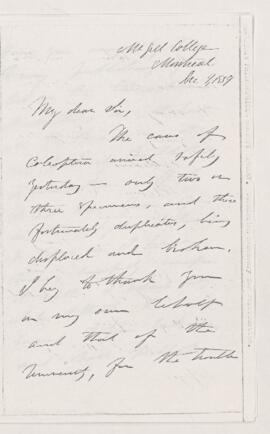 McGill College
Montreal
Dec 1, 1859
My dear Sir,
The case of
Coleoptera arrived safely
yesterday — only two or
three specimens, and those
fortunately duplicates, being
displaced and broken.
I beg to thank you
on my own behalf
and that of the
University, for the trouble